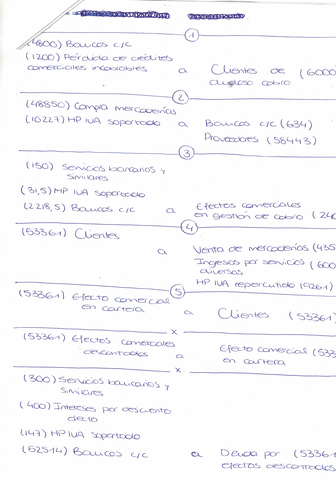 1
(4800) Bancos c/c
(1200) Pérdida de créditos
comerciales incobrables a Clientes de (6000
dudoso cobro
2
(48850) Compra mercaderías
(10227) HP IVA soportado a Bancos c/c (634)
Proveedores (58443)
3
(150) Servicios bancarios y
similares
(31,5) HP IVA soportado
(2218,5) Bancos c/c a Efectos comerciales
en gestión de cobro (240
4
(53361) Clientes
a Venta de mercaderías (435
Ingresos por servicios (600
diversos
HP IVA repercutido (9261)
5
(53361) Efecto comercial
en cartera a Clientes (53361
x
(53361) Efectos comerciales
descontados a Efecto comercial (533
en cartera
x
(300) Servicios bancarios y
similares
(400) Intereses por descuento
efecto
(147) HP IVA soportado
(52514) Bancos c/c a Deuda por (53361
efectos descontados